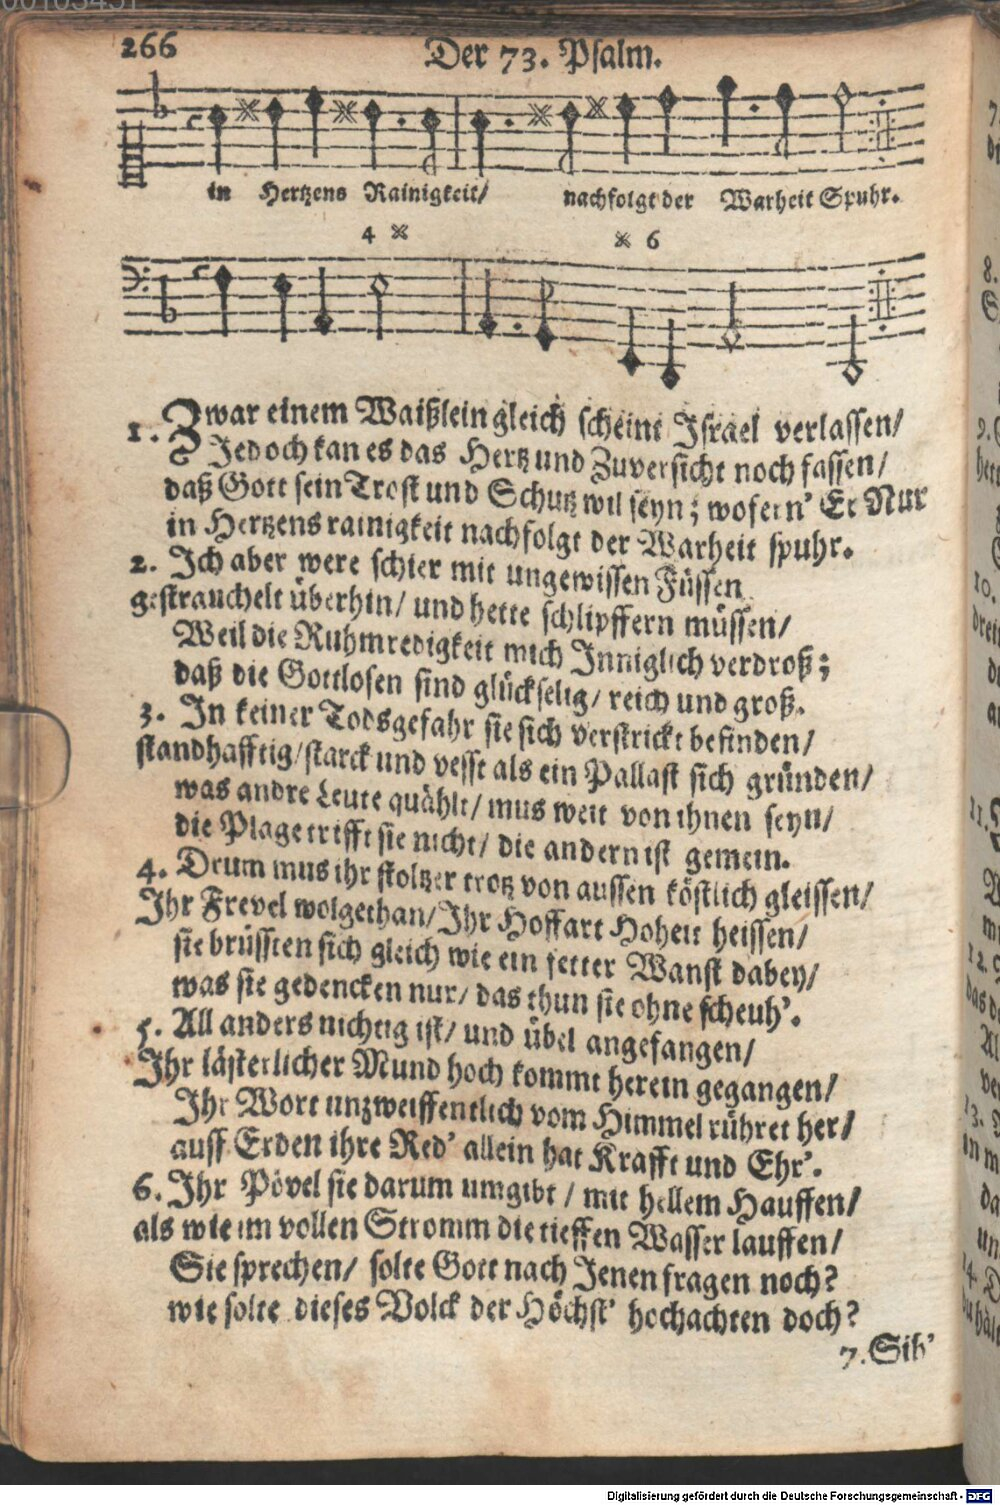 266 Der 73. Psalm.
in Hertzens Rainigkeit/ nachfolgt der Warheit Spuhr.
4 6
1. Zwar einem Waißlein gleich scheint Israel verlassen/
Jedoch kan es das Hertz und Zuversicht noch fassen/
daß Gott sein Trost und Schutz wil seyn; wofern' Er Nur
in Hertzens rainigkeit nachfolgt der Warheit spuhr.
2. Ich aber were schier mit ungewissen Füssen
gestrauchelt überhin/ und hette schlipffern müssen/
Weil die Ruhmredigkeit mich Inniglich verdroß;
daß die Gottlosen sind glückselig/ reich und groß.
3. In keiner Todsgefahr sie sich verstrickt befinden/
standhafftig/ starck und vesst als ein Pallast sich gründen/
was andre Leute quählt/ mus weit von ihnen seyn/
die Plage trifft sie nicht/ die andern ist gemein.
4. Drum mus ihr stoltzer trotz von aussen köstlich gleissen/
Ihr Frevel wolgethan/ Ihr Hoffart Hoheit heissen/
sie brüssten sich gleich wie ein fetter Wanst dabey/
was sie gedencken nur/ das thun sie ohne scheuh'.
5. All anders nichtig ist/ und übel angefangen/
Ihr lästerlicher Mund hoch kommt herein gegangen/
Ihr Wort unzweiffentlich vom Himmel rühret her/
auff Erden ihre Red' allein hat Krafft und Ehr'.
6. Ihr Pövel sie darum umgibt / mit hellem Hauffen/
als wie im vollen Stromm die tieffen Wasser lauffen/
Sie sprechen/ solte Gott nach Jenen fragen noch?
wie solte dieses Volck der Höchst' hochachten doch?
7. Sih'
Digitalisierung gefördert durch die Deutsche Forschungsgemeinschaft - DFG